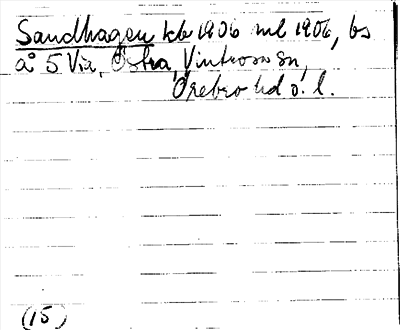 Sandhagen kb 1906 ml 1906, bs
å 5 Via, Östra, Vintrosa sn,
Örebro hd o. l.
(15)